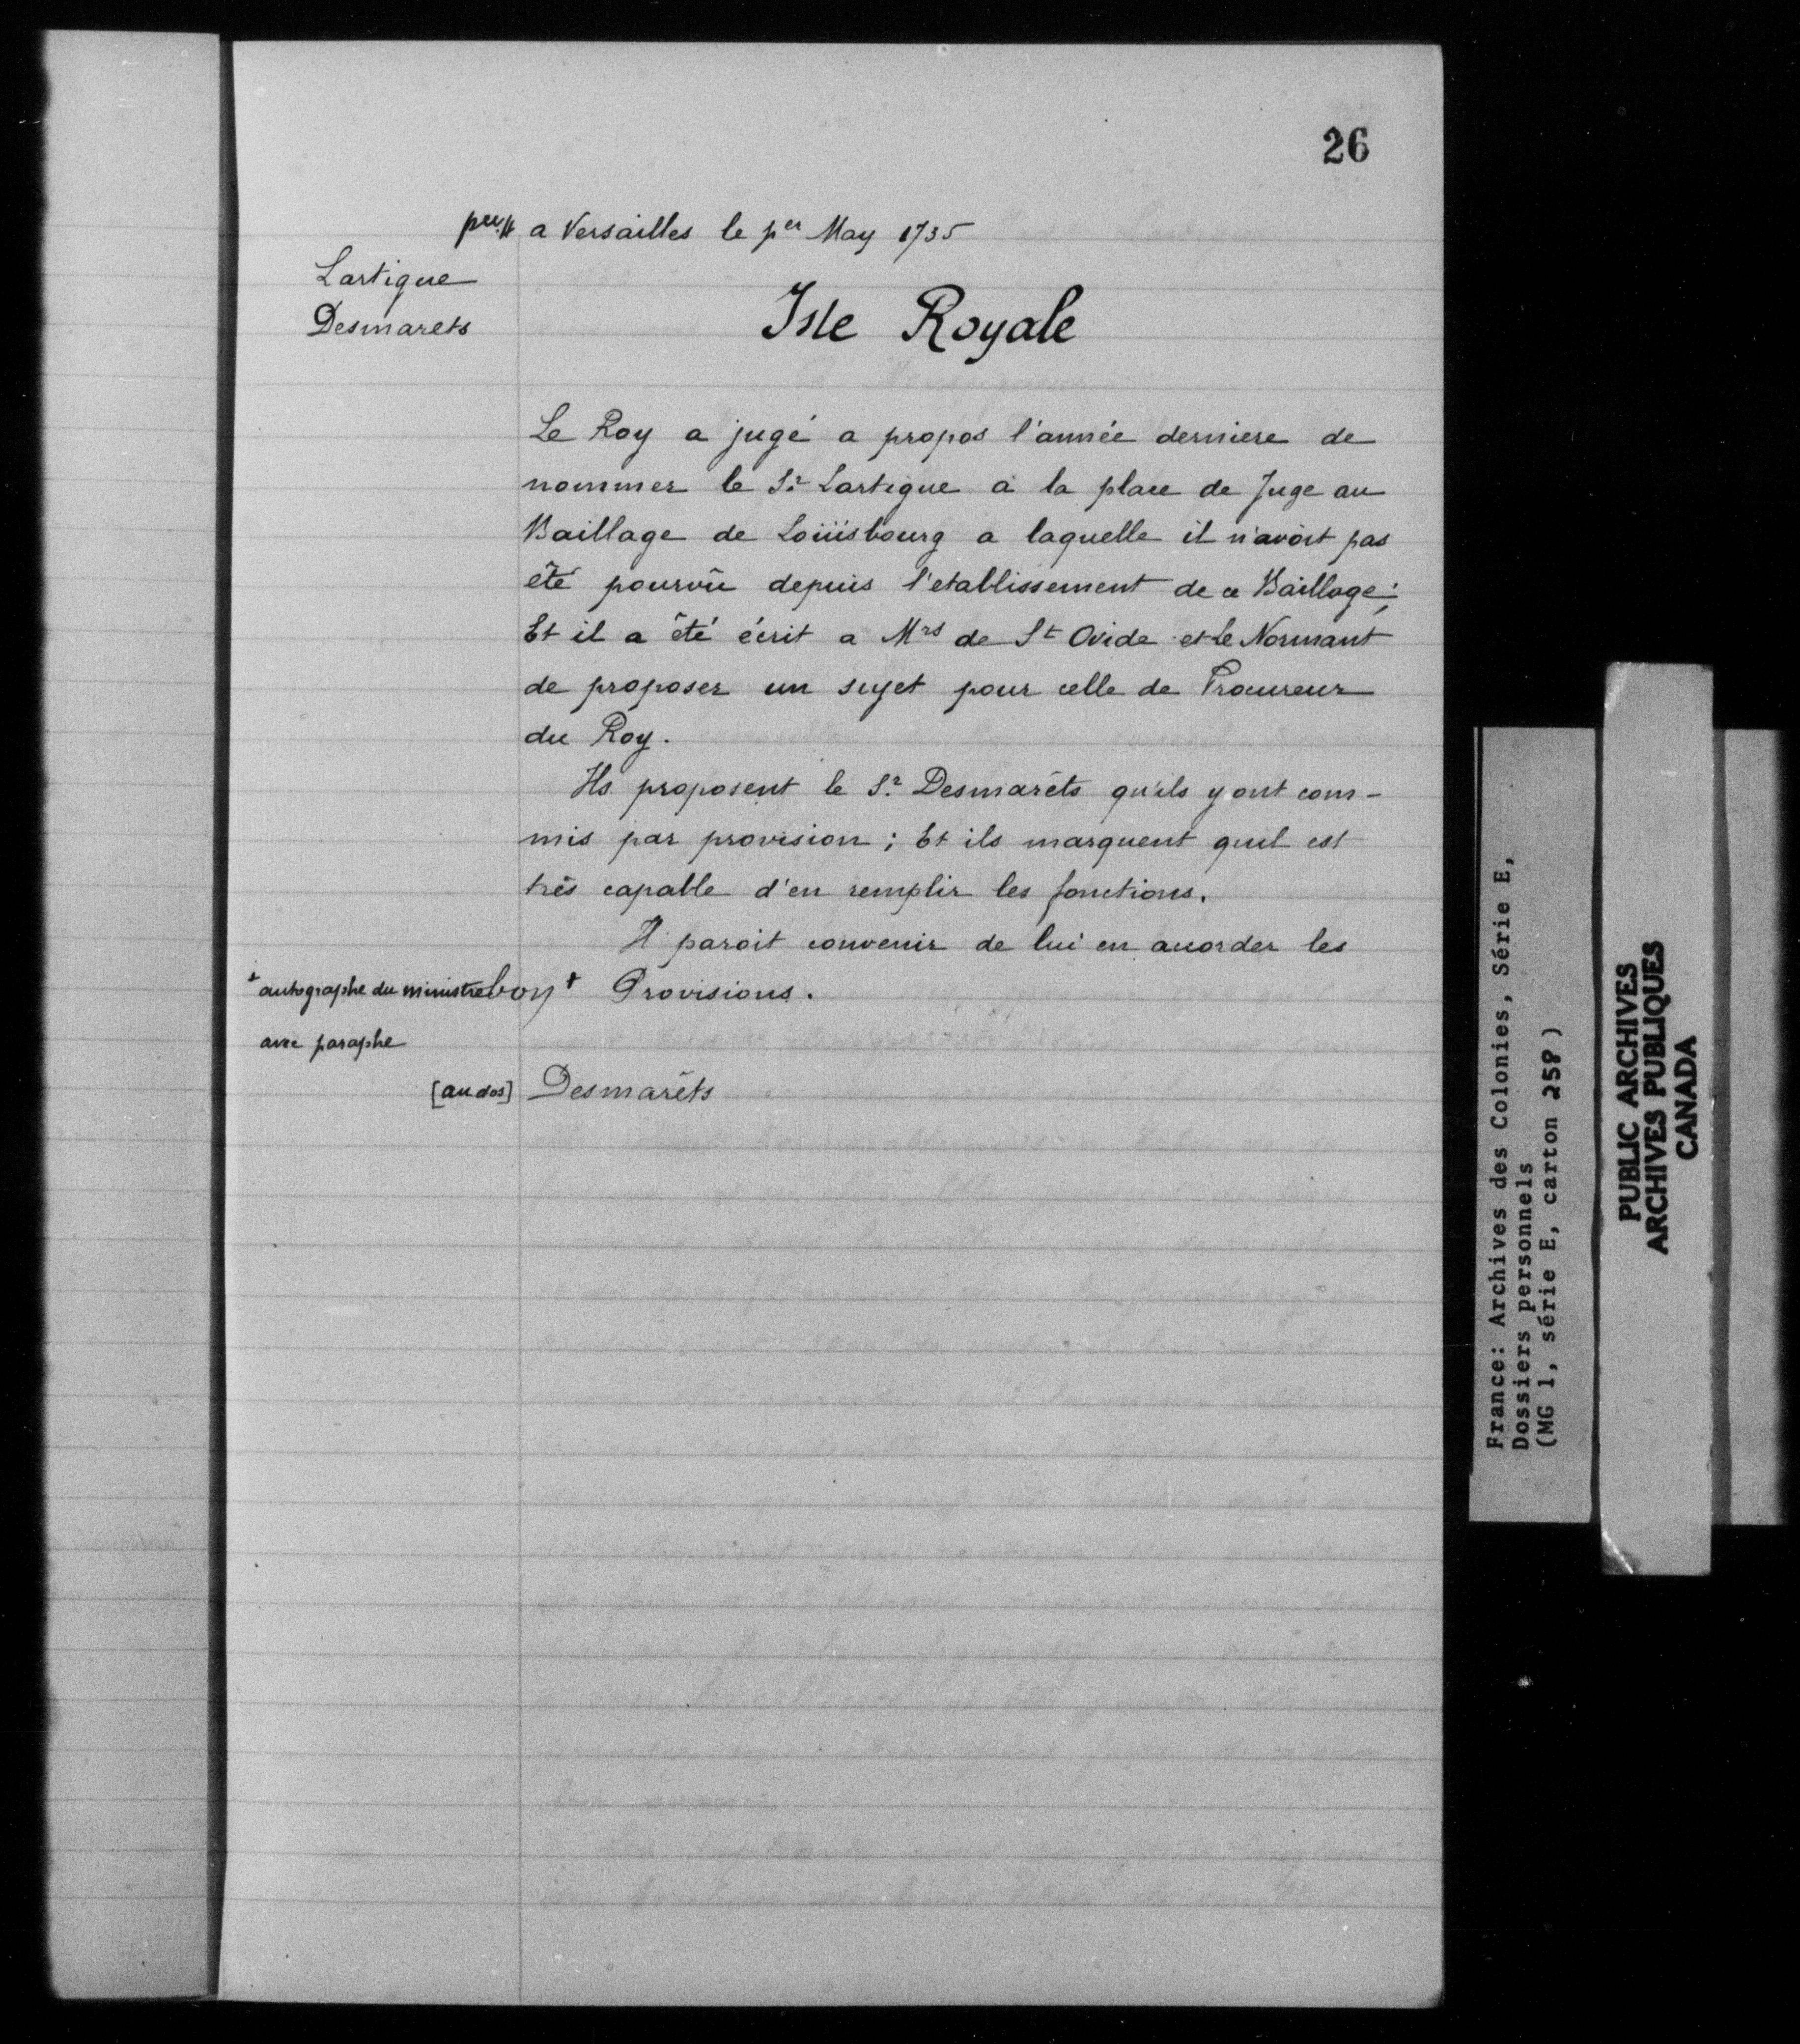 26
a Versailles le per May 1735
Lartigue
Desmarets
Isle Royale
Le Roy a jugé a propos l'année derniere de
nommer le Sr. Lartigue a la place de Juge au
Baillage de Loüisbourg a laquelle il n'avoit pas
êté pourvû depuis l'etablissement de ce Baillage;
Et il a êté écrit a Mrs de St Ovide et le Normant
de proposer un sujet pour celle de Procureur
du Roy.
Ils proposent le Sr. Desmarêts qu'ils y ont com-
mis par provision ; Et ils marquent quil est
très capable d'en remplir les fonctions.
Il paroit convenir de lui en accorder les
+ autographe du ministre bon + Provisions.
avec paraphe
[au dos] Desmarêts
France: Archives des Colonies, Série E,
Dossiers personnels
(MG 1, série E, carton 258)
PUBLIC ARCHIVES
ARCHIVES PUBLIQUES
CANADA